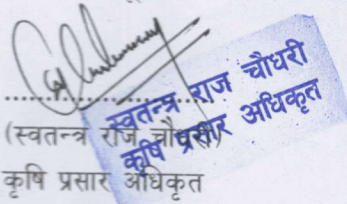 स्वतन्त्र राज चौधरी
कृषि प्रसार अधिकृत
....................
(स्वतन्त्र राज चौधरी)
कृषि प्रसार अधिकृत